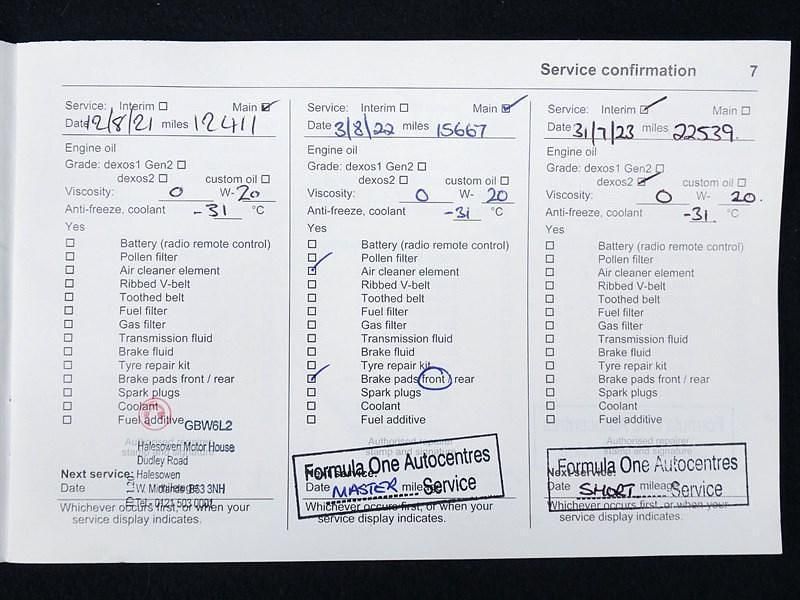 Service confirmation 7
Service: Interim Main
Date 12/8/21 miles 12411
Engine oil
Grade: dexos1 Gen2
dexos2 custom oil
Viscosity: 0 W- 20
Anti-freeze, coolant -31 °C
Yes
Battery (radio remote control)
Pollen filter
Air cleaner element
Ribbed V-belt
Toothed belt
Fuel filter
Gas filter
Transmission fluid
Brake fluid
Tyre repair kit
Brake pads front / rear
Spark plugs
Coolant
Fuel additive
GBW6L2
Authorised repairer
stamp and signature
Halesowen Motor House
Dudley Road
Halesowen
W. Midlands B63 3NH
Next service:
Date mileage
Whichever occurs first, or when your
service display indicates.
Service: Interim Main
Date 3/8/22 miles 15667
Engine oil
Grade: dexos1 Gen2
dexos2 custom oil
Viscosity: 0 W- 20
Anti-freeze, coolant -31 °C
Yes
Battery (radio remote control)
Pollen filter
Air cleaner element
Ribbed V-belt
Toothed belt
Fuel filter
Gas filter
Transmission fluid
Brake fluid
Tyre repair kit
Brake pads front / rear
Spark plugs
Coolant
Fuel additive
Authorised repairer
stamp and signature
Formula One Autocentres
MASTER Service
Date mileage
Whichever occurs first, or when your
service display indicates.
Service: Interim Main
Date 31/7/23 miles 22539.
Engine oil
Grade: dexos1 Gen2
dexos2 custom oil
Viscosity: 0 W- 20.
Anti-freeze, coolant -31. °C
Yes
Battery (radio remote control)
Pollen filter
Air cleaner element
Ribbed V-belt
Toothed belt
Fuel filter
Gas filter
Transmission fluid
Brake fluid
Tyre repair kit
Brake pads front / rear
Spark plugs
Coolant
Fuel additive
Authorised repairer
stamp and signature
Next service:
Formula One Autocentres
SHORT Service
Date mileage
Whichever occurs first, or when your
service display indicates.